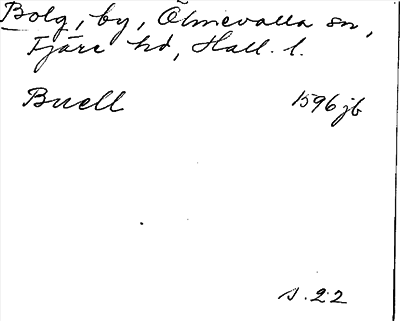 Bolg, by, Ölmevalla sn,
Fjäre hd, Hall. l.
Buell 1596 jb
s. 22